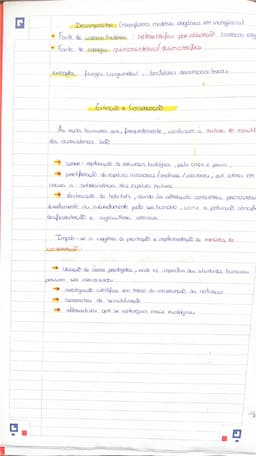 Decompositor (transforma matéria orgânica em inorgânica)
• Fonte de carbono/matéria: heterotrófico por absorção
• Fonte de energia: quimiossintético / quimiotrófico
exemplo: fungos (cogumelos), bactérias decompositoras
Extinção e Conservação
As ações humanas que, frequentemente, conduzem à rutura do equilíbrio
dos ecossistemas são:
→ sobre-exploração de recursos biológicos, pela caça e pesca
→ proliferação de espécies invasoras / exóticas / daninhas, que põem em
causa a sobrevivência das espécies nativas
→ destruição do habitat, devido às alterações climáticas, provocadas
diretamente ou indiretamente pelo ser humano, como a poluição
desflorestação e agricultura intensiva
Impõe-se a urgência de promoção e implementação de medidas de
conservação:
→ criação de áreas protegidas, onde os impactos das atividades humanas
possam ser minimizados
→ investigação científica em torno da conservação da natureza
→ campanhas de sensibilização
→ alternativas que se